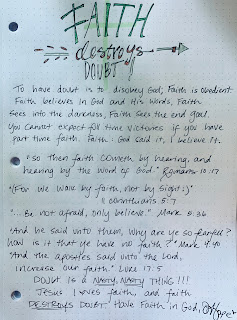 FAITH
destroys
DOUBT
To have doubt is to disobey God; Faith is obedient.
Faith believes in God and His Words. Faith
sees into the darkness, Faith sees the end goal.
You cannot expect full time victories if you have
part time faith. Faith: God said it, I believe it.
"so then faith cometh by hearing, and
hearing by the word of God." Romans 10:17
"(For we walk by faith, not by sight:)"
II Corinthians 5:7
"...Be not afraid, only believe." Mark 5:36
"And he said unto them, Why are ye so fearful?
how is it that ye have no faith?" Mark 4:40
"And the apostles said unto the Lord,
Increase our faith." Luke 17:5
DOUBT IS A NASTY, NASTY THING!!!
Jesus loves faith, and faith
DESTROYS DOUBT. Have Faith in God,